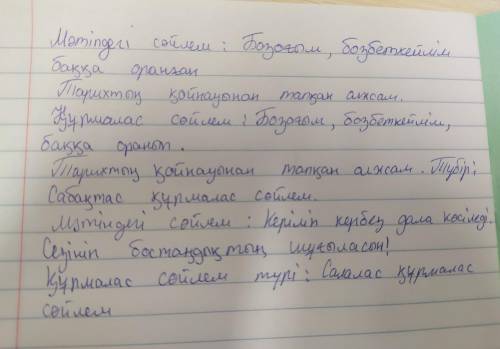 Мәтіндегі сөйлем : Бозоғым, бозбеткейлім
баққа оранған
Тарихтың қойнауынан тапқан алхсам.
Құрмалас сөйлем : Бозоғым, бозбеткейлім,
баққа оранып.
Тарихтың қойнауынан тапқан алхсам. Түбірі:
Сабақтас құрмалас сөйлем.
Мәтіндегі сөйлем : Керіліп кербез дала көсіледі.
Сезініп бостандықтың шұғыласын!
Құрмалас сөйлем түрі : Салалас құрмалас
сөйлем